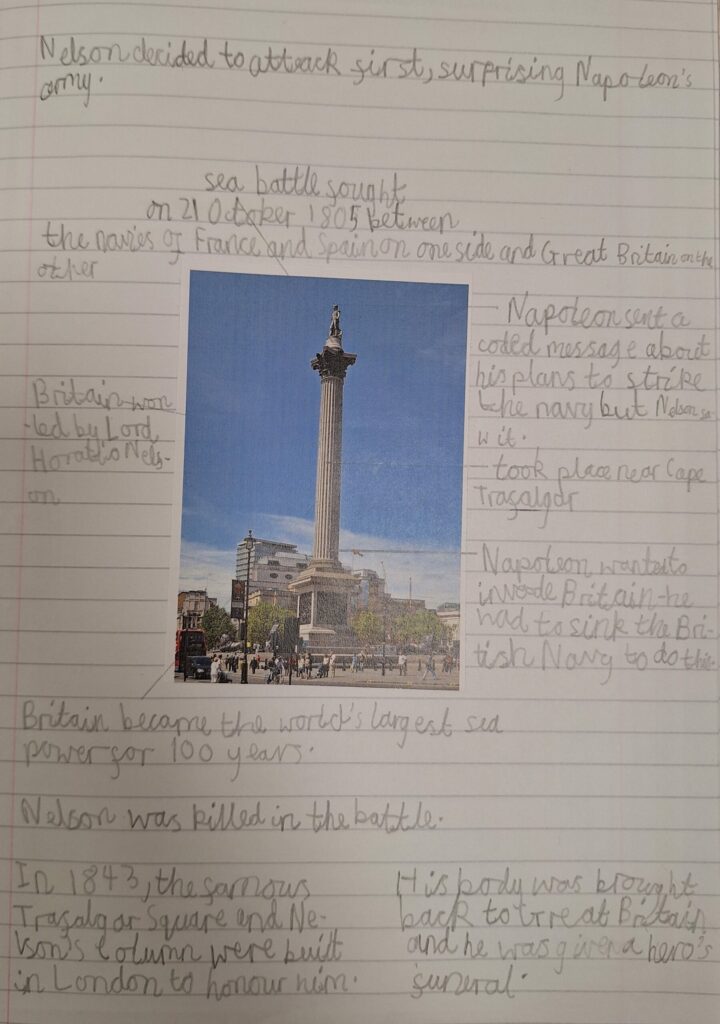 Nelson decided to attack first, surprising Napoleon's
army.
sea battle fought
on 21 October 1805 between
the navies of France and Spain on one side and Great Britain on the
other
Britain won
-led by Lord
Horatio Nels-
on
Napoleon sent a
coded message about
his plans to strike
the navy but Nelson sa
w it.
took place near Cape
Trafalgar
Napoleon wanted to
invade Britain-he
had to sink the Bri-
tish Navy to do this
Britain became the world's largest sea
power for 100 years.
Nelson was killed in the battle.
In 1843, the famous
Trafalgar Square and Ne-
lson's Column were built
in London to honour him.
His body was brought
back to Great Britain
and he was given a hero's
funeral.